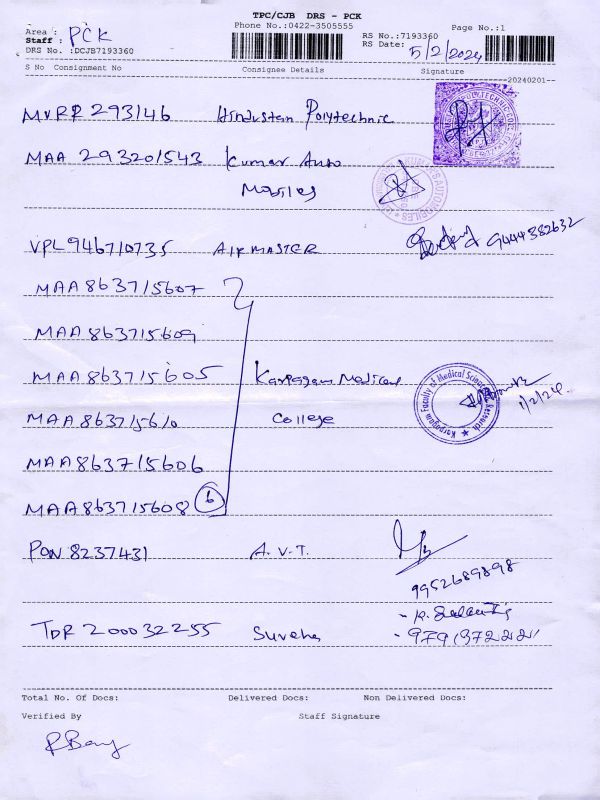 TPC/CJB DRS - PCK
Phone No.:0422-3505555
Page No.:1
Area : PCK
Staff :
RS No.:7193360
DRS No. :DCJB7193360
RS Date: 5/2/2024
S No Consignment No Consignee Details Signature
20240201
MVRR 293146 Hindustan Polytechnic
MAA 293201543 Kumar Auto
Mobiles
VPL946710735 AIRMASTER 9444382632
MAA 863715607
MAA 863715609
MAA 863715605 Karpagam Medical
1/2/24
MAA 863715610 College
MAA 863715606
MAA 863715608 6
PON 8237431 A.V.T.
9952689898
TDR 200032255 Sureka
Total No. Of Docs: Delivered Docs: Non Delivered Docs:
Verified By Staff Signature
Karpagam Faculty of Medical Sciences Research